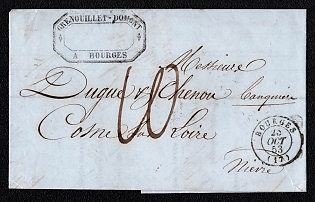 GRENOUILLET-DOMONT
A BOURGES
Messieurs
Dugue & Chenou banquiers
Cosne sur Loire
Nièvre
10
BOURGES
25
OCT
53
(17)